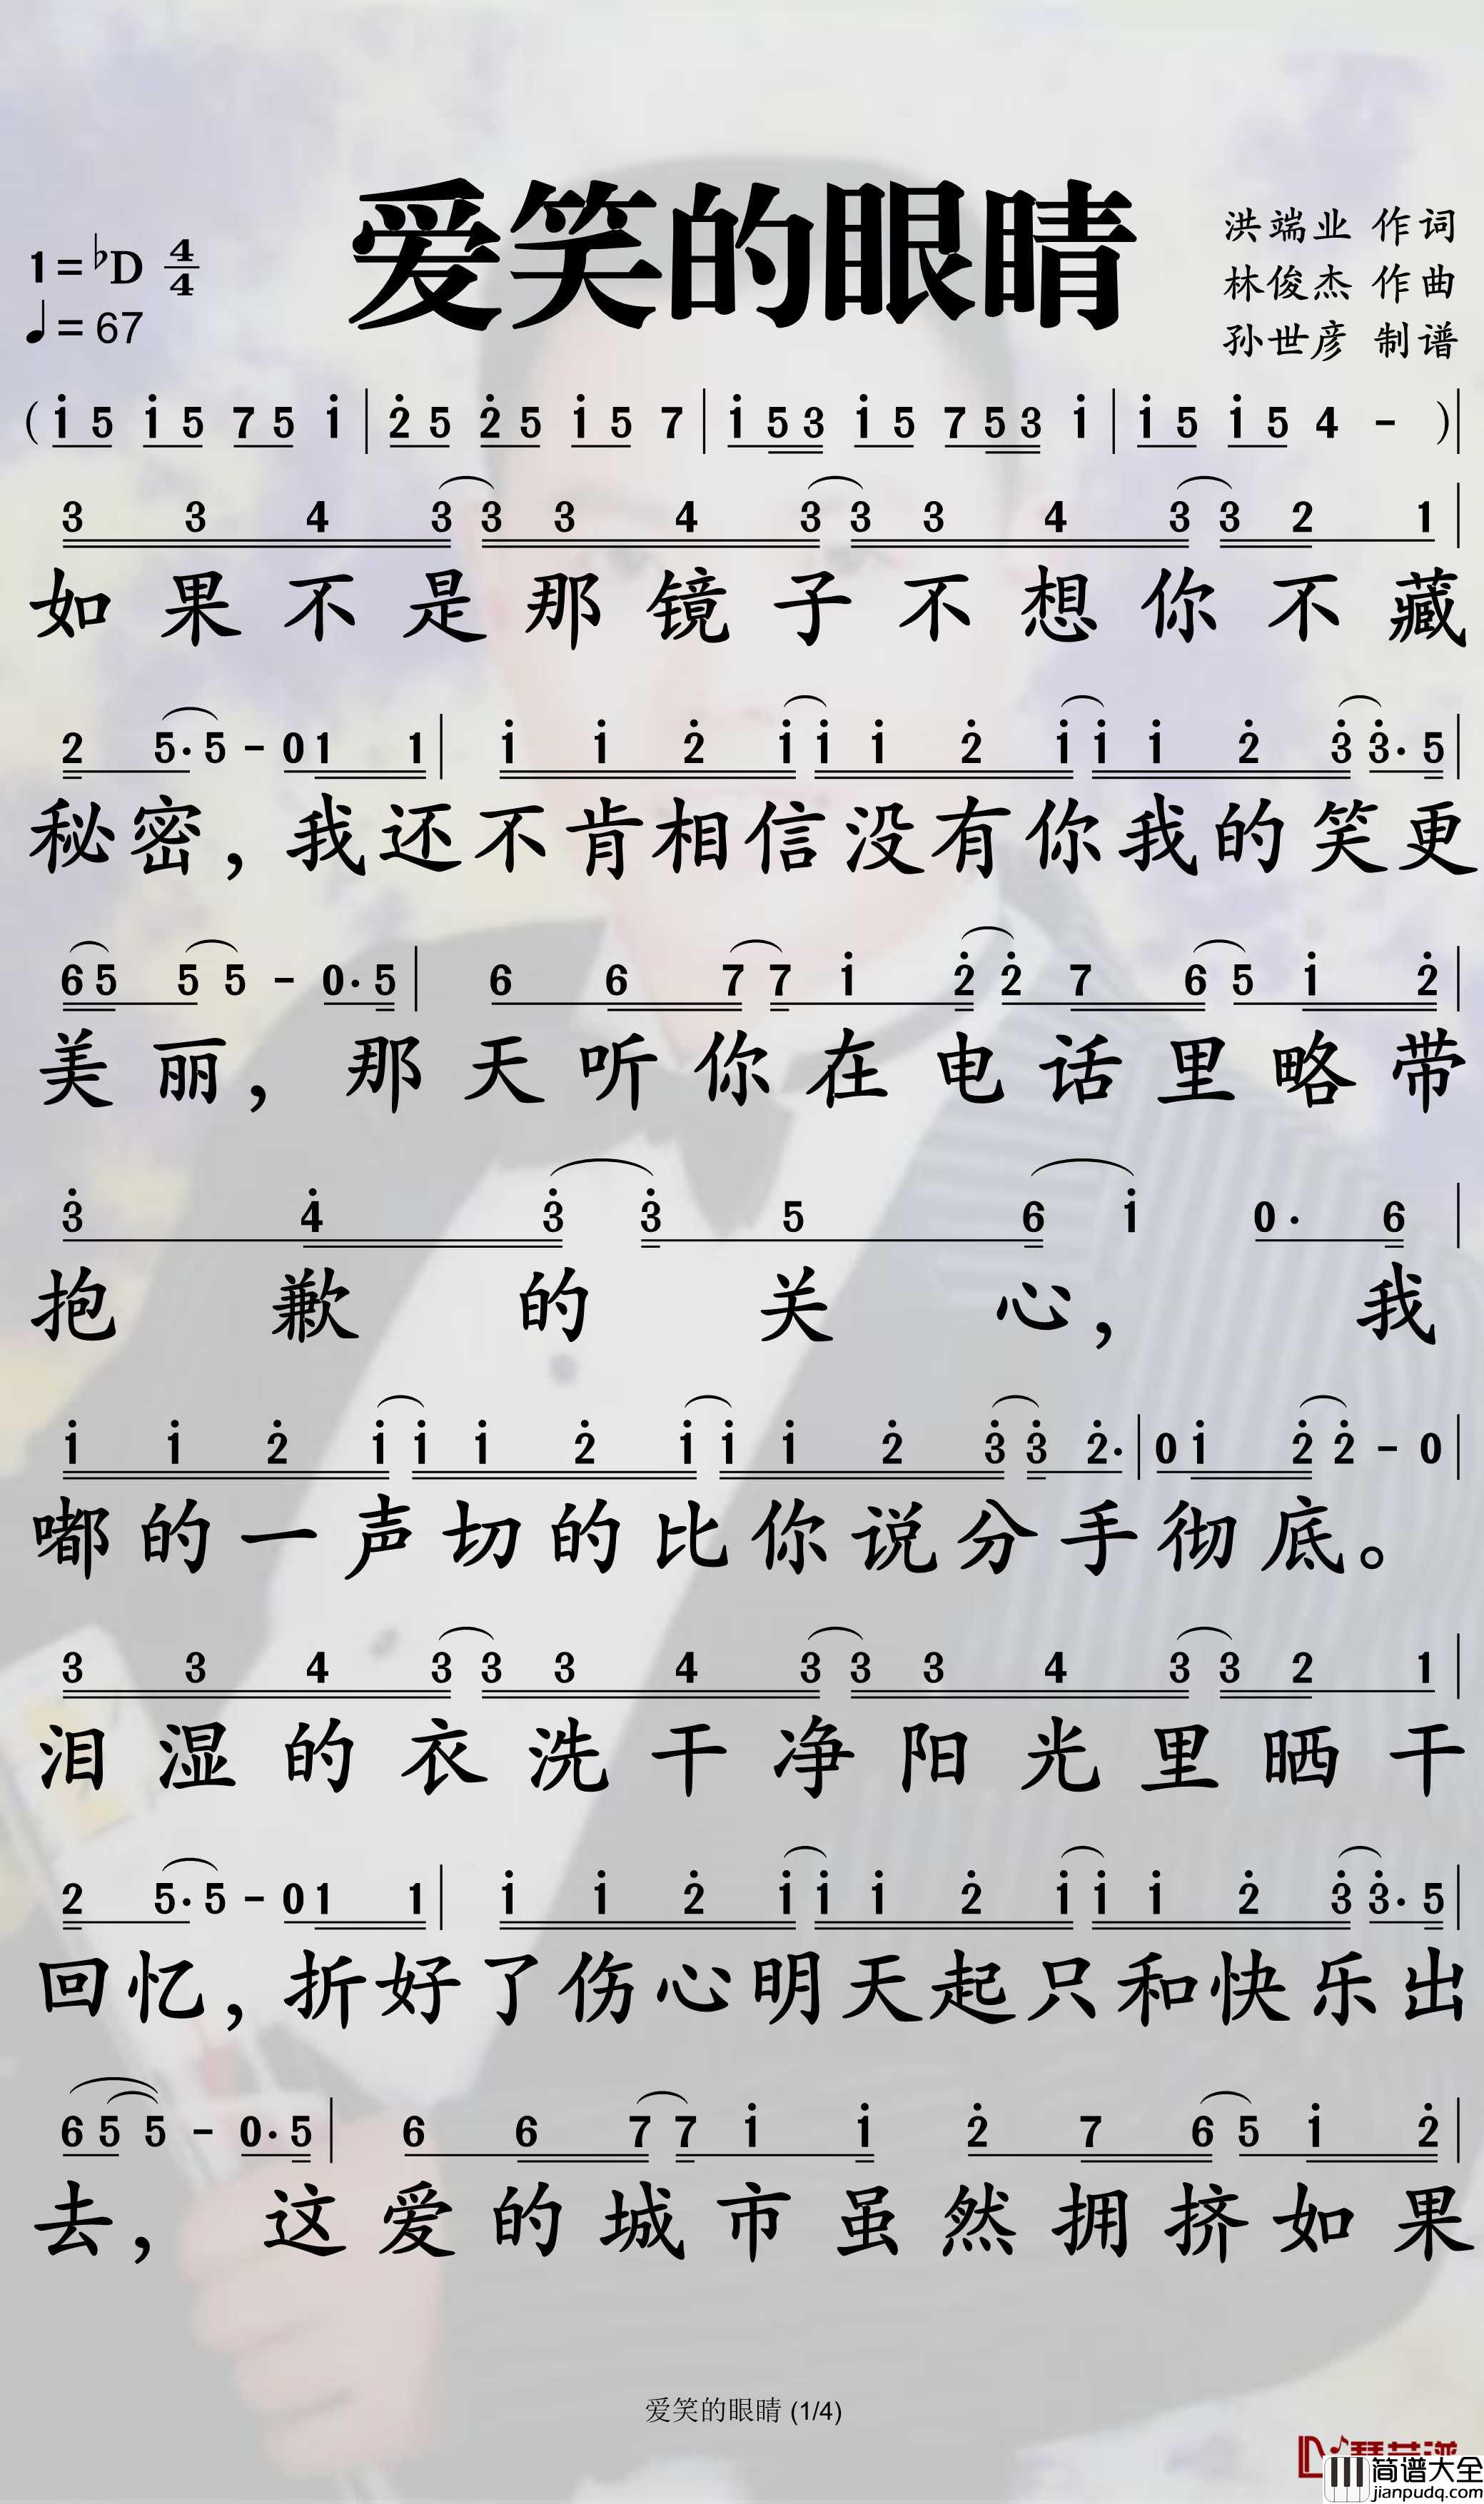 爱笑的眼睛
1=♭D 4/4
♩=67
洪端业 作词
林俊杰 作曲
孙世彦 制谱
( i 5 i 5 7 5 i | 2̇ 5 2̇ 5 i 5 7 | i 5 3 i 5 7 5 3 i | i 5 i 5 4 - ) |
3 3 4 3 3 3 4 3 3 3 4 3 3 2 1 |
如果不是那镜子不想你不藏
2 5· 5 - 0 1 1 | i i 2̇ i i i 2̇ i i i 2̇ 3̇ 3̇· 5 |
秘密，我还不肯相信没有你我的笑更
6 5 5 5 - 0· 5 | 6 6 7 7 i 2̇ 2̇ 7 6 5 i 2̇ |
美丽，那天听你在电话里略带
3̇ 4̇ 3̇ 3̇ 5 6 i 0· 6 |
抱歉的关心，我
i i 2̇ i i i 2̇ i i i 2̇ 3̇ 3̇ 2̇· | 0 i 2̇ 2̇ - 0 |
嘟的一声切的比你说分手彻底。
3 3 4 3 3 3 4 3 3 3 4 3 3 2 1 |
泪湿的衣洗干净阳光里晒干
2 5· 5 - 0 1 1 | i i 2̇ i i i 2̇ i i i 2̇ 3̇ 3̇· 5 |
回忆，折好了伤心明天起只和快乐出
6 5 5 - 0· 5 | 6 6 7 7 i i 2̇ 7 6 5 i 2̇ |
去，这爱的城市虽然拥挤如果
爱笑的眼睛 (1/4)
简谱大全
jianpudq.com